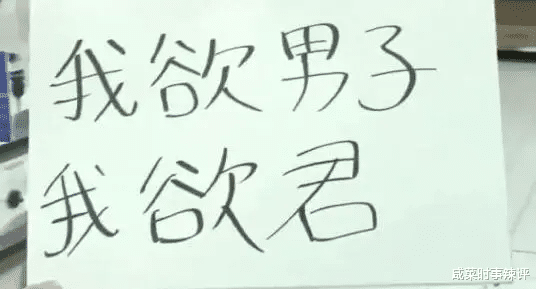 我欲男子
我欲君
咸菜时事辣评